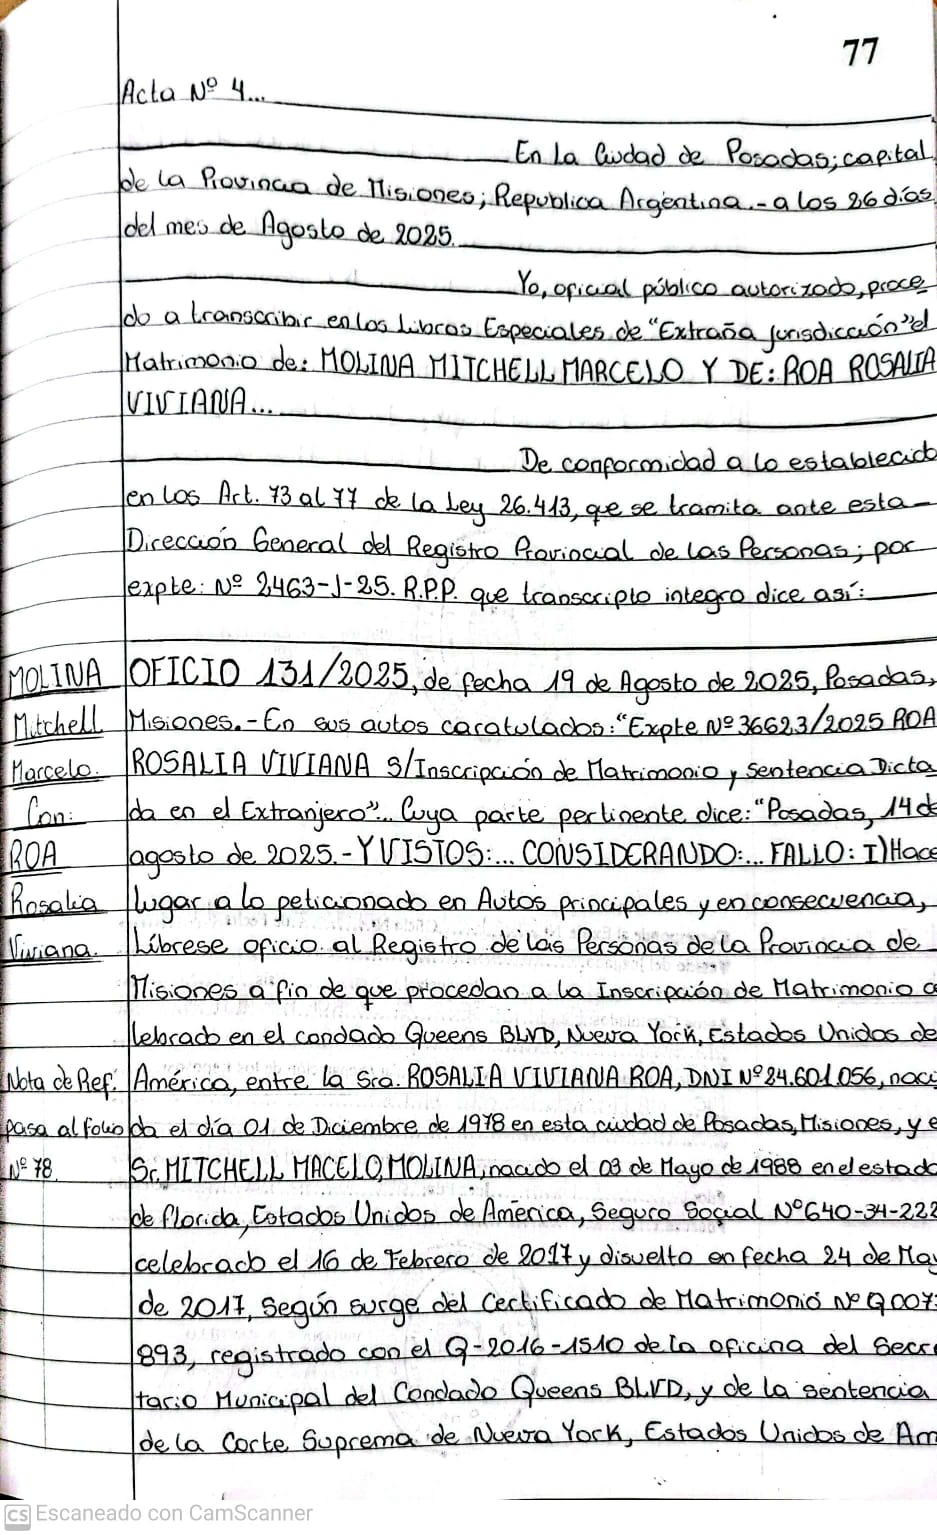 77
Acta Nº 4...
En la Ciudad de Posadas; capital
de la Provincia de Misiones; Republica Argentina.- a los 26 días
del mes de Agosto de 2025.
Yo, oficial público autorizado, proce
do a transcribir en los Libros Especiales de "Extraña jurisdicción" el
Matrimonio de: MOLINA MITCHELL MARCELO Y DE: ROA ROSALIA
VIVIANA...
De conformidad a lo establecido
en los Art. 73 al 77 de la Ley 26.413, que se tramita ante esta
Dirección General del Registro Provincial de las Personas; por
expte: Nº 2463-J-25. R.P.P. que transcripto integro dice así:
MOLINA OFICIO 131/2025, de fecha 19 de Agosto de 2025, Posadas,
Mitchell Misiones.- En sus autos caratulados: "Expte Nº 36623/2025 ROA
Marcelo. ROSALIA VIVIANA S/Inscripción de Matrimonio y Sentencia Dicta
Con: da en el Extranjero"... Cuya parte pertinente dice: "Posadas, 14 de
ROA agosto de 2025.- Y VISTOS:... CONSIDERANDO:... FALLO: I) Hace
Rosalia lugar a lo peticionado en Autos principales y en consecuencia,
Viviana. Líbrese oficio al Registro de las Personas de la Provincia de
Misiones a fin de que procedan a la Inscripción de Matrimonio ce
lebrado en el condado Queens BLVD, Nueva York, Estados Unidos de
Nota de Ref: América, entre la Sra. ROSALIA VIVIANA ROA, DNI Nº 24.601.056, naci
pasa al folio da el día 01 de Diciembre de 1978 en esta ciudad de Posadas, Misiones, y e
Nº 78. Sr. MITCHELL MACELO, MOLINA, nacido el 03 de Mayo de 1988 en el estado
de florida, Estados Unidos de América, Seguro Social Nº 640-34-222
celebrado el 16 de Febrero de 2017 y disuelto en fecha 24 de May
de 2017, Según surge del Certificado de Matrimonio Nº Q007
893, registrado con el Q-2016-1510 de la oficina del Secre
tario Municipal del Condado Queens BLVD, y de la sentencia
de la Corte Suprema de Nueva York, Estados Unidos de Am
CS Escaneado con CamScanner